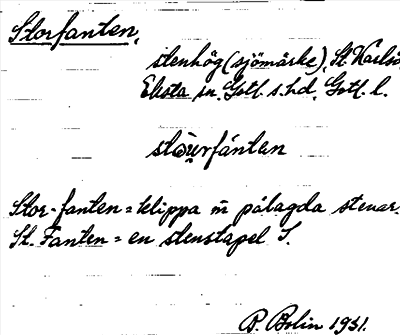 Storfanten,
stenhög (sjömärke), St. Karlsö
Eksta sn. Gotl. s. hd. Gotl. l.
stòu̯rfánten
Stor-fanten = klippa m̄ pålagda stenar.
St. Fanten = en stenstapel S.
P. Bolin 1931.